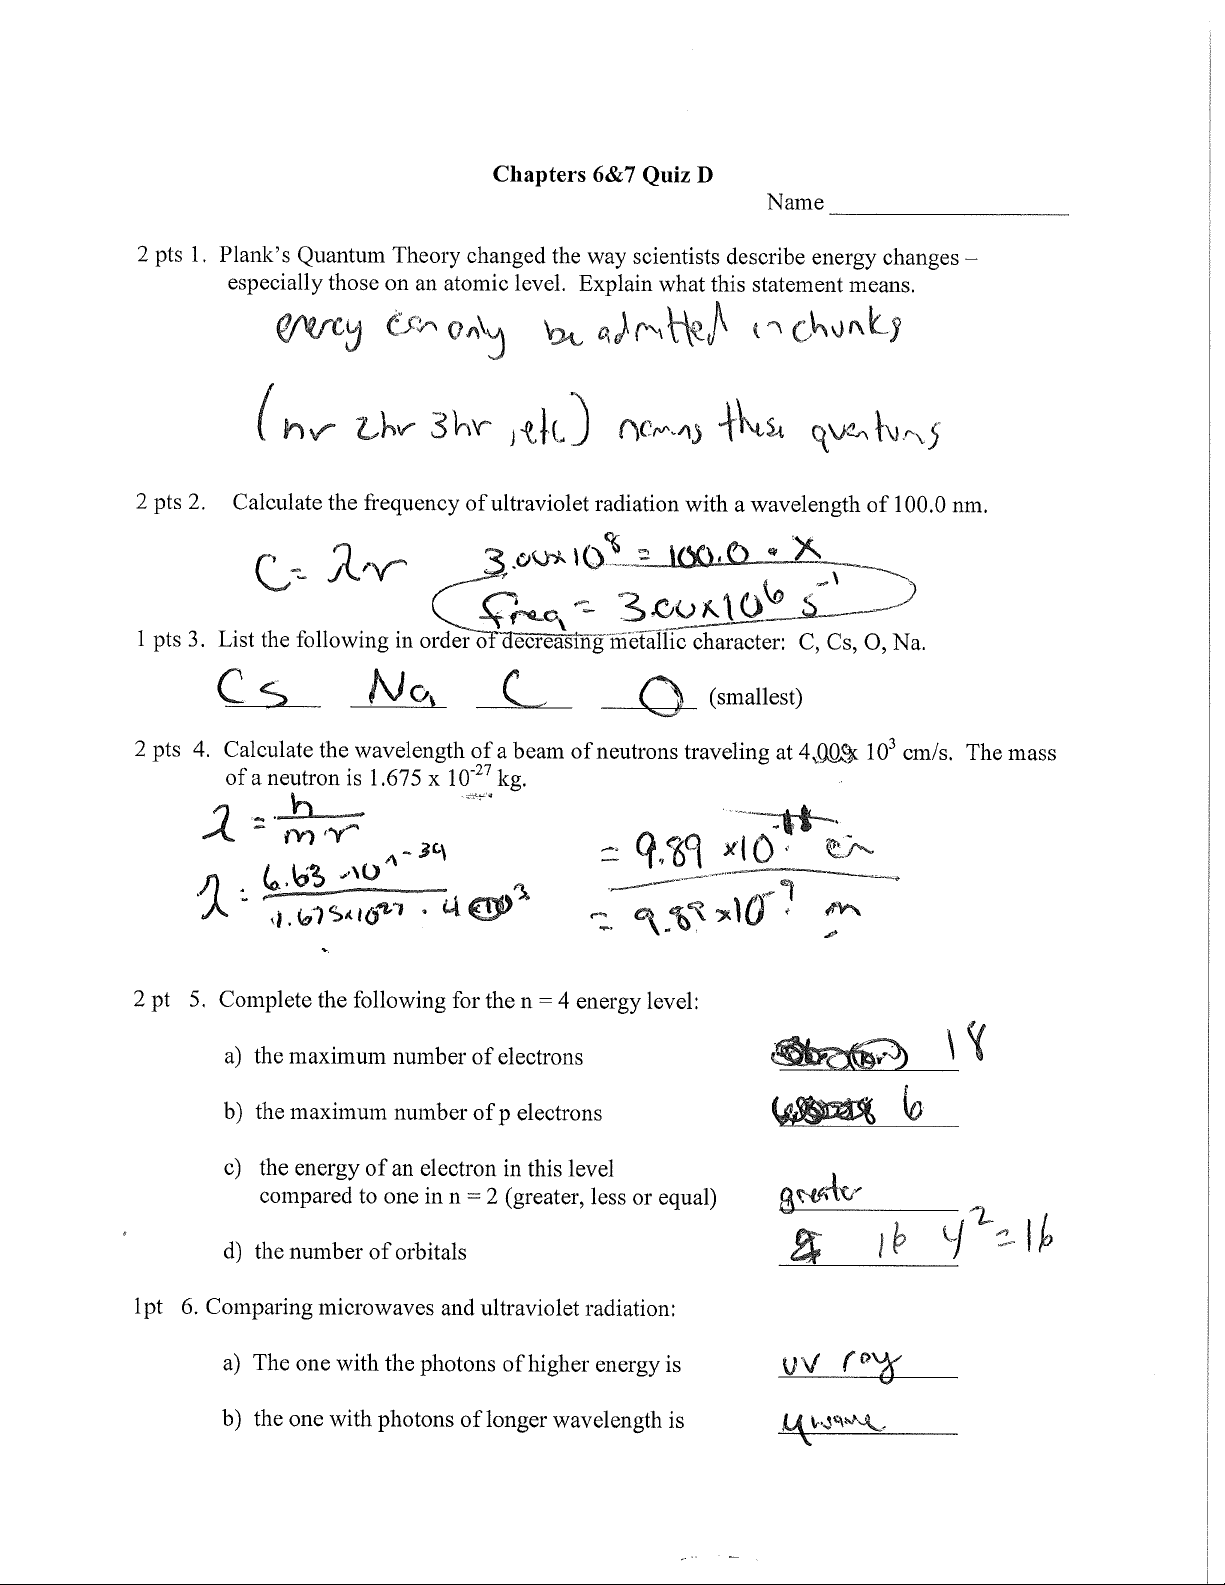 Chapters 6&7 Quiz D
Name
2 pts 1. Plank's Quantum Theory changed the way scientists describe energy changes –
especially those on an atomic level. Explain what this statement means.
energy can only be admitted in chunks
(hν 2hν 3hν , etc) naming these quantums
2 pts 2. Calculate the frequency of ultraviolet radiation with a wavelength of 100.0 nm.
C = λν 3.00x10⁸ = 100.0 • X
freq = 3.00x10⁶ s⁻¹
1 pts 3. List the following in order of decreasing metallic character: C, Cs, O, Na.
Cs Na C O (smallest)
2 pts 4. Calculate the wavelength of a beam of neutrons traveling at 4.00 x 10³ cm/s. The mass
of a neutron is 1.675 x 10⁻²⁷ kg.
λ = h / mv
= 9.89 x10 cm
λ = 6.63 x10^-34 / 1.675x10²⁷ · 4000³
= 9.89 x10⁻⁹ m
2 pt 5. Complete the following for the n = 4 energy level:
a) the maximum number of electrons 18
b) the maximum number of p electrons 6
c) the energy of an electron in this level
compared to one in n = 2 (greater, less or equal) greater
d) the number of orbitals 16 4² = 16
1pt 6. Comparing microwaves and ultraviolet radiation:
a) The one with the photons of higher energy is UV ray
b) the one with photons of longer wavelength is